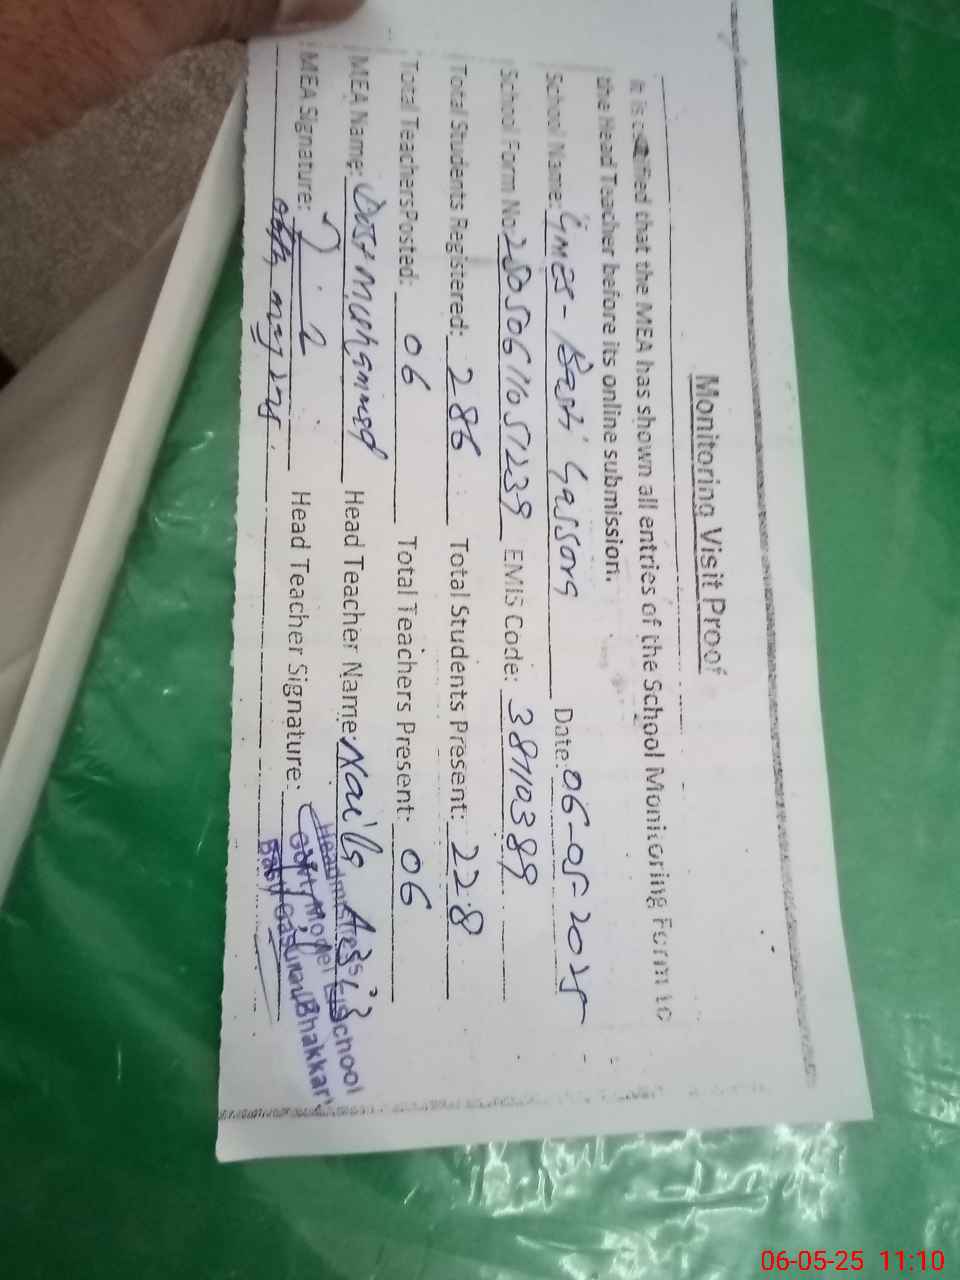 Monitoring Visit Proof
It is certified that the MEA has shown all entries of the School Monitoring Form to
the Head Teacher before its online submission.
School Name: GMES - Basti Gassora Date: 06-05-2025
School Form No: 28050611051239 EMIS Code: 38110389
Total Students Registered: 286 Total Students Present: 228
Total Teachers Posted: 06 Total Teachers Present: 06
MEA Name: Dost Muhammad Head Teacher Name: Naila Aziz
MEA Signature: Head Teacher Signature:
Headmistress
Govt Model E/School
Basti Bhakkar
06-05-25 11:10